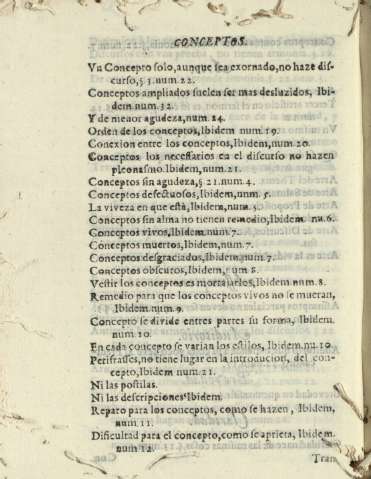 CONCEPTOS.
Vn Concepto solo, aunque sea exornado, no haze dis-
curso, § 3. num. 22.
Conceptos ampliados suelen ser mas desluzidos, Ibi-
dem num. 32.
Y de menor agudeza, num. 24.
Orden de los conceptos, Ibidem num. 19.
Conexion entre los conceptos, Ibidem, num. 20.
Conceptos los necessarios en el discurso no hazen
pleonasmo. Ibidem, num. 21.
Conceptos sin agudeza, § 21. num. 4.
Conceptos defectuosos, Ibidem, num. 5.
La viveza en que està, Ibidem, num. 5.
Conceptos sin alma no tienen remedio, Ibidem nu. 6.
Conceptos vivos, Ibidem num. 7.
Conceptos muertos, Ibidem, num. 7.
Conceptos desgraciados, Ibidem, num. 7.
Conceptos obscuros, Ibidem, num 8.
Vestir los conceptos es mortajarlos, Ibidem num. 8.
Remedio para que los conceptos vivos no se mueran,
Ibidem num. 9.
Concepto se divide entres partes su forma, Ibidem.
num. 10.
En cada concepto se varian los estilos, Ibidem. nu. 10
Perifrasses, no tiene lugar en la introducion, del con-
cepto, Ibidem num. 21.
Ni las postilas.
Ni las descripciones Ibidem.
Reparo para los conceptos, como se hazen, Ibidem,
num. 11.
Dificultad para el concepto, como se aprieta, Ibidem.
num 12.
Tran